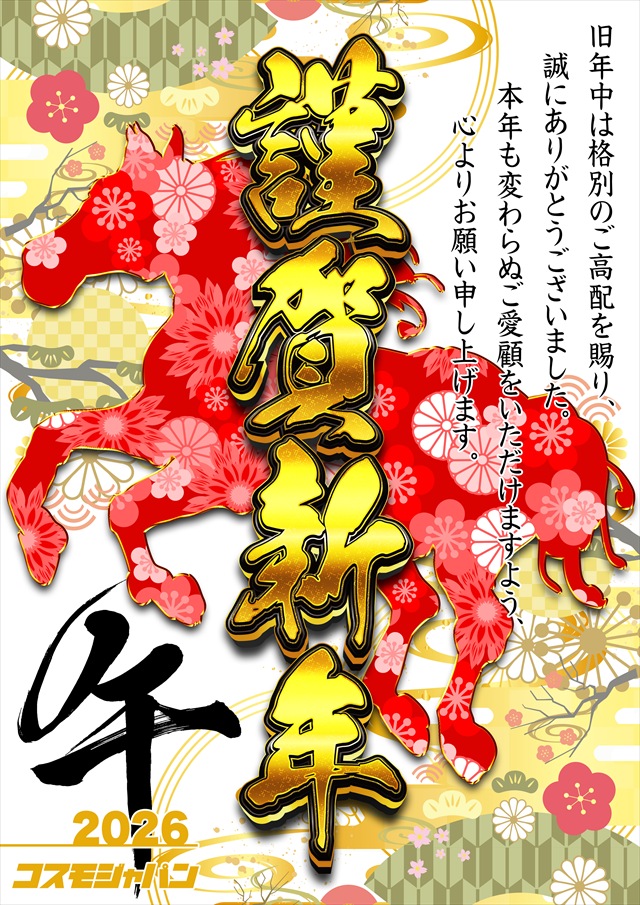 旧年中は格別のご高配を賜り、
誠にありがとうございました。
本年も変わらぬご愛顧をいただけますよう、
心よりお願い申し上げます。
謹賀新年
午
2026
コスモジャパン